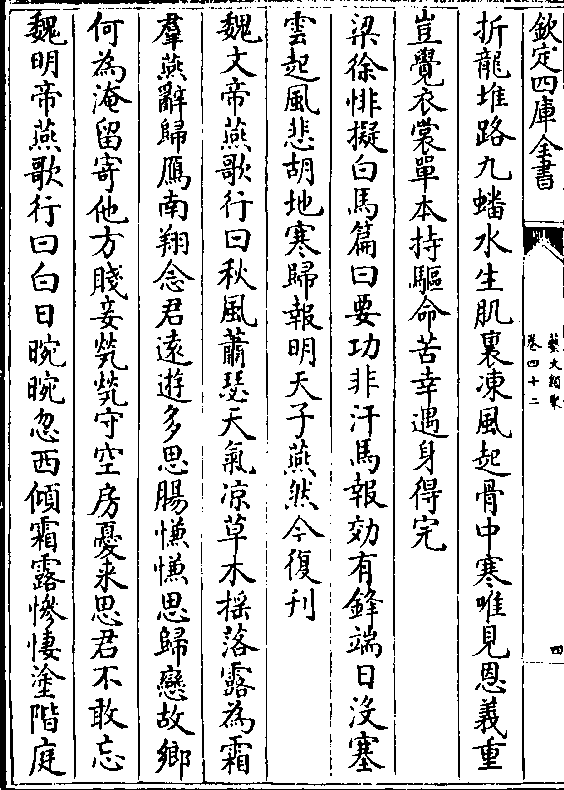 欽定四庫全書
藝文類聚
卷四十二
四
折龍堆路九蟠水生肌裏凍風起骨中寒唯見恩義重
豈覺衣裳單本持驅命苦幸遇身得完
梁徐悱擬白馬篇曰要功非汗馬報効有鋒端日沒塞
雲起風悲胡地寒歸報明天子燕然今復刋
魏文帝燕歌行曰秋風蕭瑟天氣凉草木揺落露為霜
羣燕辭歸鴈南翔念君遠遊多思腸慊慊思歸戀故鄉
何為淹留寄他方賤妾煢煢守空房憂來思君不敢忘
魏明帝燕歌行曰白日晼晼忽西傾霜露慘悽塗階庭